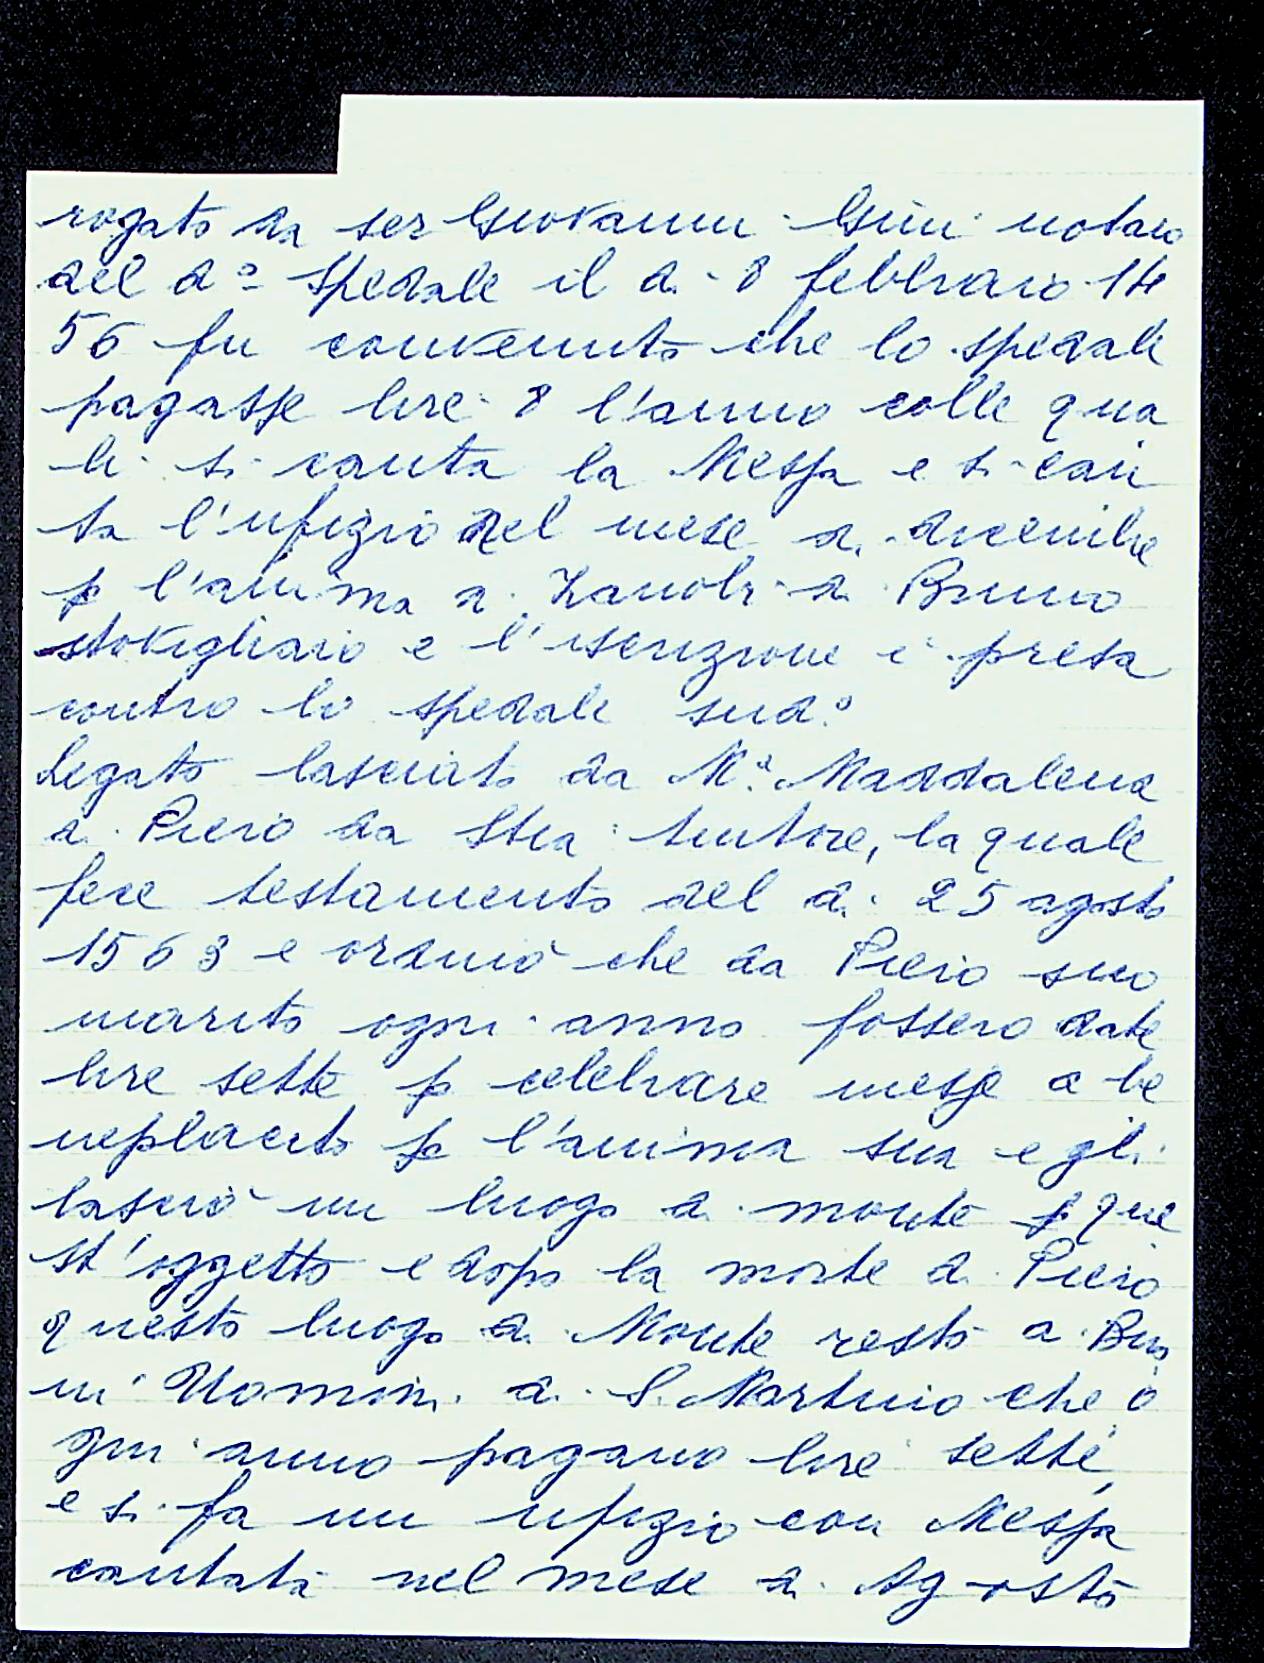 rogato da ser Giovanni Gini notaro
del d.º Spedale il dì 8 febbraio 14
56 fu convenuto che lo spedale
pagasse lire 8 l'anno colle qua
li si canta la Messa e si can
ta l'ufizio nel mese di dicembre
p l'anima di Zanobi di Bruno
stovigliaio e l'iscrizione è presa
contro lo spedale sud.º
Legato lasciato da M.ª Maddalena
di Piero da Stia tintore, la quale
fece testamento del dì 25 agosto
1563 e ordinò che da Piero suo
marito ogni anno fossero date
lire sette p celebrare messe a be
neplacito p l'anima sua e gli
lasciò un luogo di monte p que
st'oggetto e dopo la morte di Piero
questo luogo di Monte restò a Buo
ni Uomini di S. Martino che o
gni anno pagano lire sette,
e si fa un ufizio con Messa
cantata nel mese di Agosto